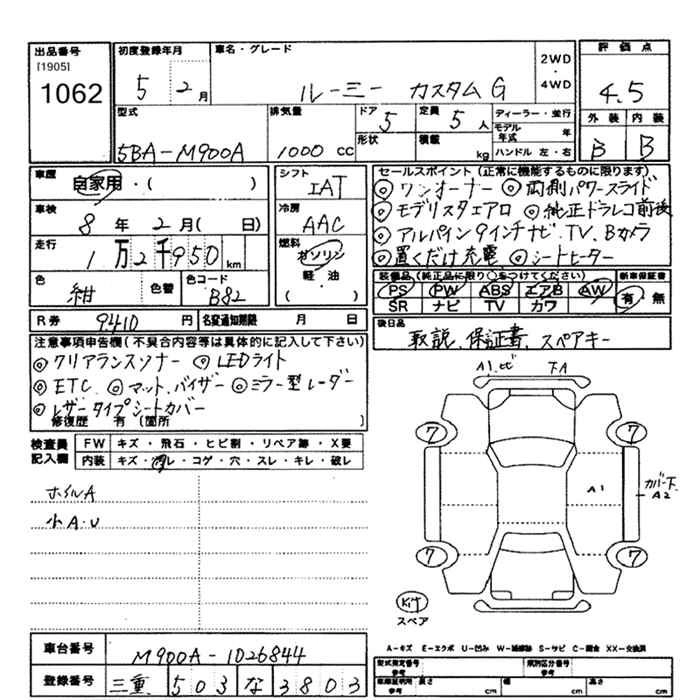 出品番号 [1905] 1062
初度登録年月 5 2月
車名・グレード ルーミー カスタムG
2WD・4WD
評価点 4.5
外装 B 内装 B
型式 5BA-M900A
排気量 1000 cc
ドア 5 形状
定員 5人 積載 kg
ディーラー・並行
モデル年式 年
ハンドル 左・右
車歴 自家用・( )
車検 8年 2月( 日)
走行 1万2千950km
色 紺 色替 色コード B82
R券 9410円 名変通知期限 月 日
シフト IAT
冷房 AAC
燃料 ガソリン 軽油 ( )
セールスポイント(正常に機能するものに限ります)
◎ワンオーナー ◎両側パワースライド
◎モデリスタエアロ ◎純正ドラレコ前後
◎アルパイン9インチナビ.TV.Bカメラ
◎置くだけ充電 ◎シートヒーター
装備品(純正品に限り○をつけてください) 新車保証書
PS PW ABS エアB AW 有・無
SR ナビ TV カワ
後日品 取説、保証書、スペアキー
注意事項申告欄(不具合内容等は具体的に記入して下さい)
◎クリアランスソナー ◎LEDライト
◎ETC ◎マット.バイザー ◎ミラー型レーダー
◎レザータイプシートカバー
修復歴 有(箇所 )
検査員記入欄
FW キズ・飛石・ヒビ割・リペア跡・X要
内装 キズ・汚レ・コゲ・穴・スレ・キレ・破レ
ホイルA
小A.U
A1.ビ 下A
7 7
A1 カバー下 A2
7 7
Kit
スペア
A-キズ E-エクボ U-凹み W-補修跡 S-サビ C-腐食 XX-交換済
車台番号 M900A-1026844
登録番号 三重 503 な 3803
型式指定番号 参考 類別区分番号 参考
車庫証明所 参考 長さ cm 幅 cm 高さ cm